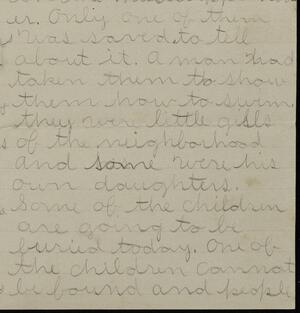 er. Only one of them
was saved to tell
about it. A man had
taken them to show
them how to swim.
they were little girls
of the neighborhood
and some were his
own daughters.
Some of the children
are going to be
buried today. One of
the children cannot
be found and people